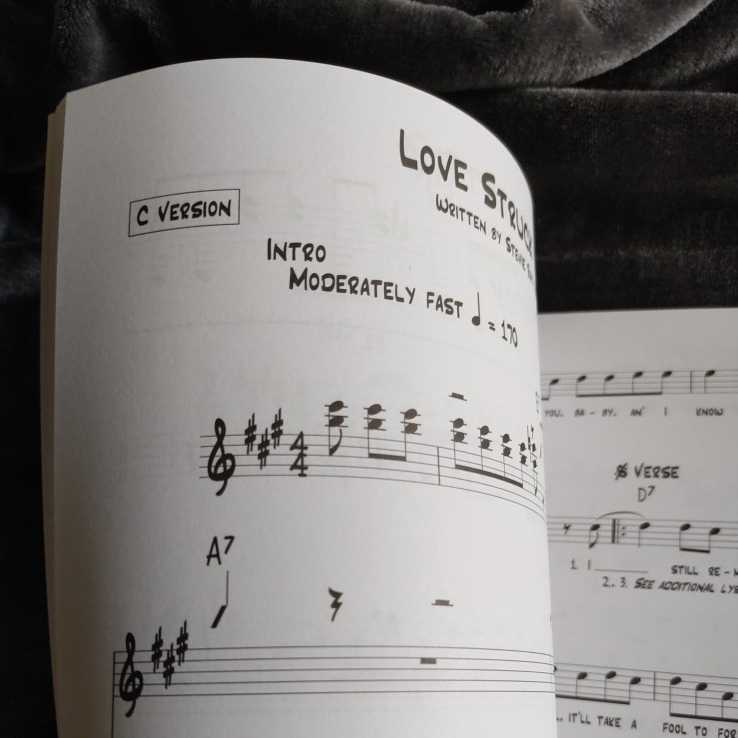 LOVE STRUCK
WRITTEN BY STEVIE
C VERSION
INTRO
MODERATELY FAST ♩ = 170
4
4
A7
YOU, BA - BY, AN' I KNOW
𝄋 VERSE
D7
1. I STILL RE -
2., 3. SEE ADDITIONAL
IT'LL TAKE A FOOL TO